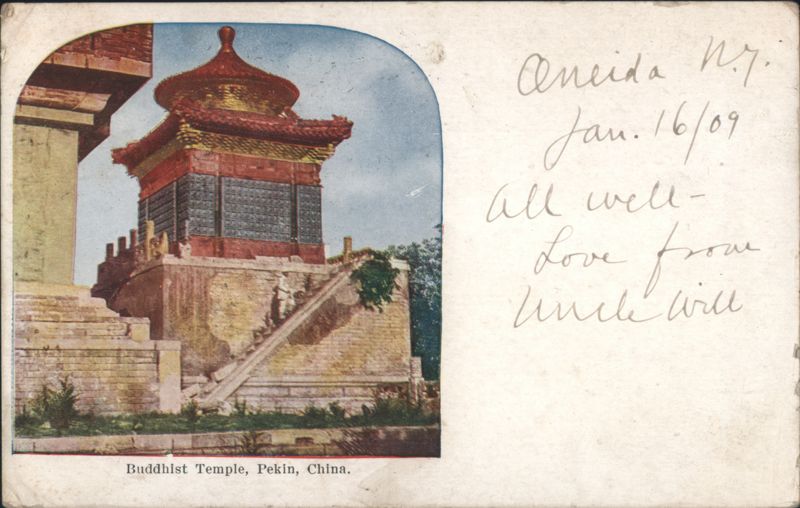 Oneida N.Y.
Jan. 16/09
All well -
Love from
Uncle Will
Buddhist Temple, Pekin, China.